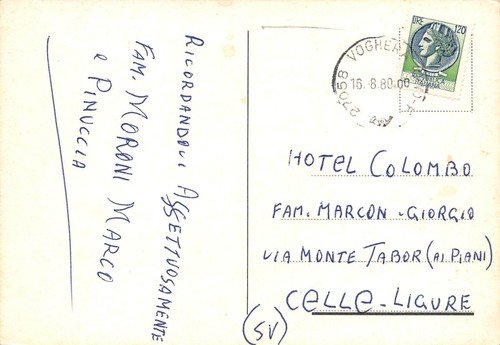 RICORDANDOVI AFFETTUOSAMENTE
FAM. MORONI MARCO
E PINUCCIA
LIRE 120
27058 VOGHERA
16.8.80.00
HOTEL COLOMBO
FAM. MARCON-GIORGIO
VIA MONTE TABOR (AI PIANI)
CELLE-LIGURE
(SV)